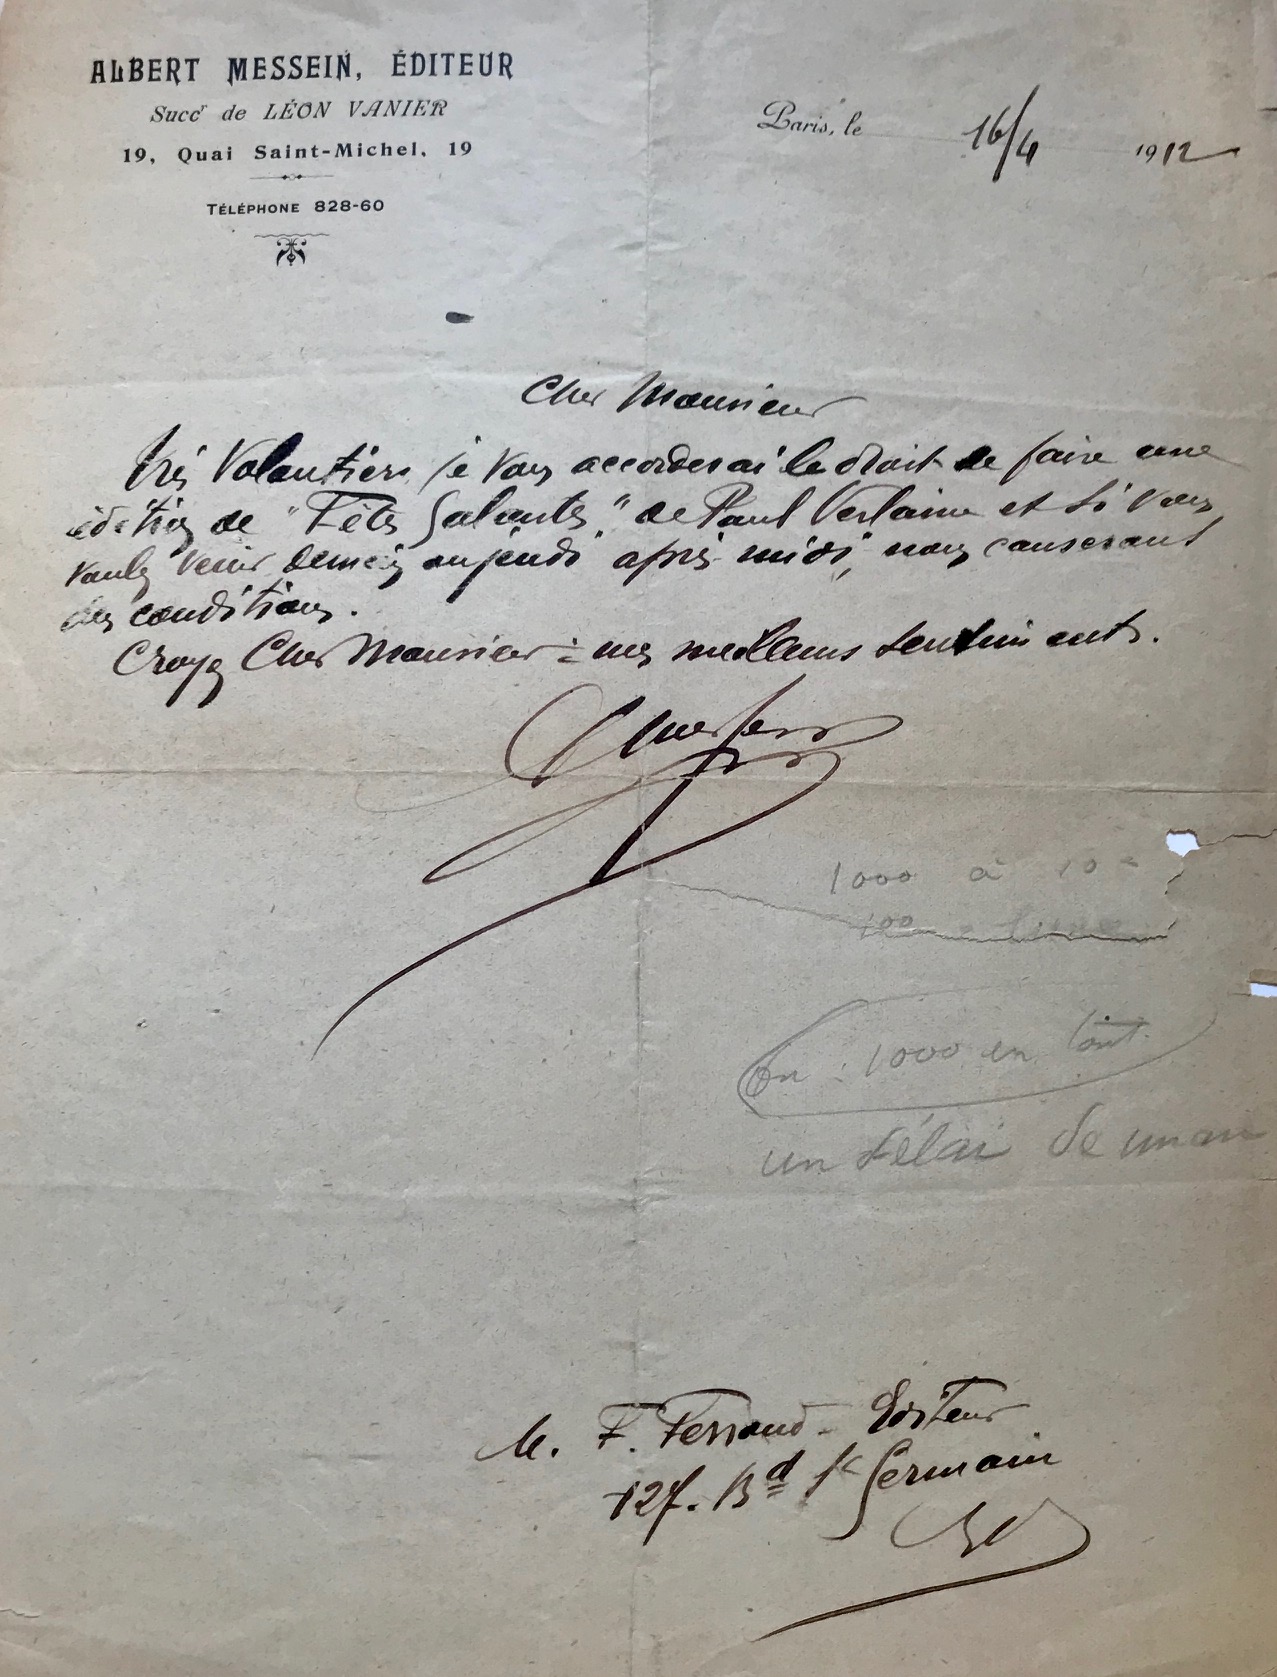 ALBERT MESSEIN, ÉDITEUR
Succr de LÉON VANIER
19, Quai Saint-Michel, 19
TÉLÉPHONE 828-60
Paris, le 16/4 1912
Cher Monsieur
Très Volontiers je vous accorderai le droit de faire une
édition de "Fêtes Galantes" de Paul Verlaine et si vous
voulez venir demain ou jeudi après midi, nous causerons
des conditions.
Croyez Cher Monsieur à mes meilleurs sentiments.
AMessein
1000 à 10
100
ou : 1000 en tout
un délai de un an
M. F. Ferroud - Editeur
127. Bd St Germain